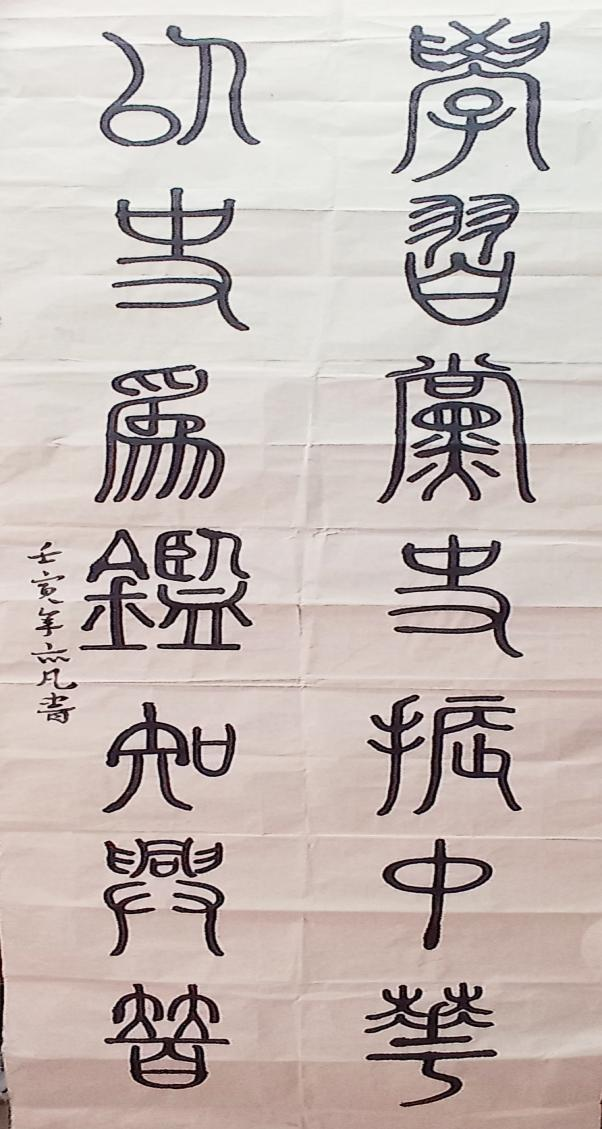 學習黨史振中華
以史爲鑑知興替
壬寅年亦凡書